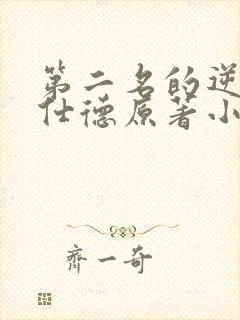 第二名的逆
仕德原著小
齊一奇